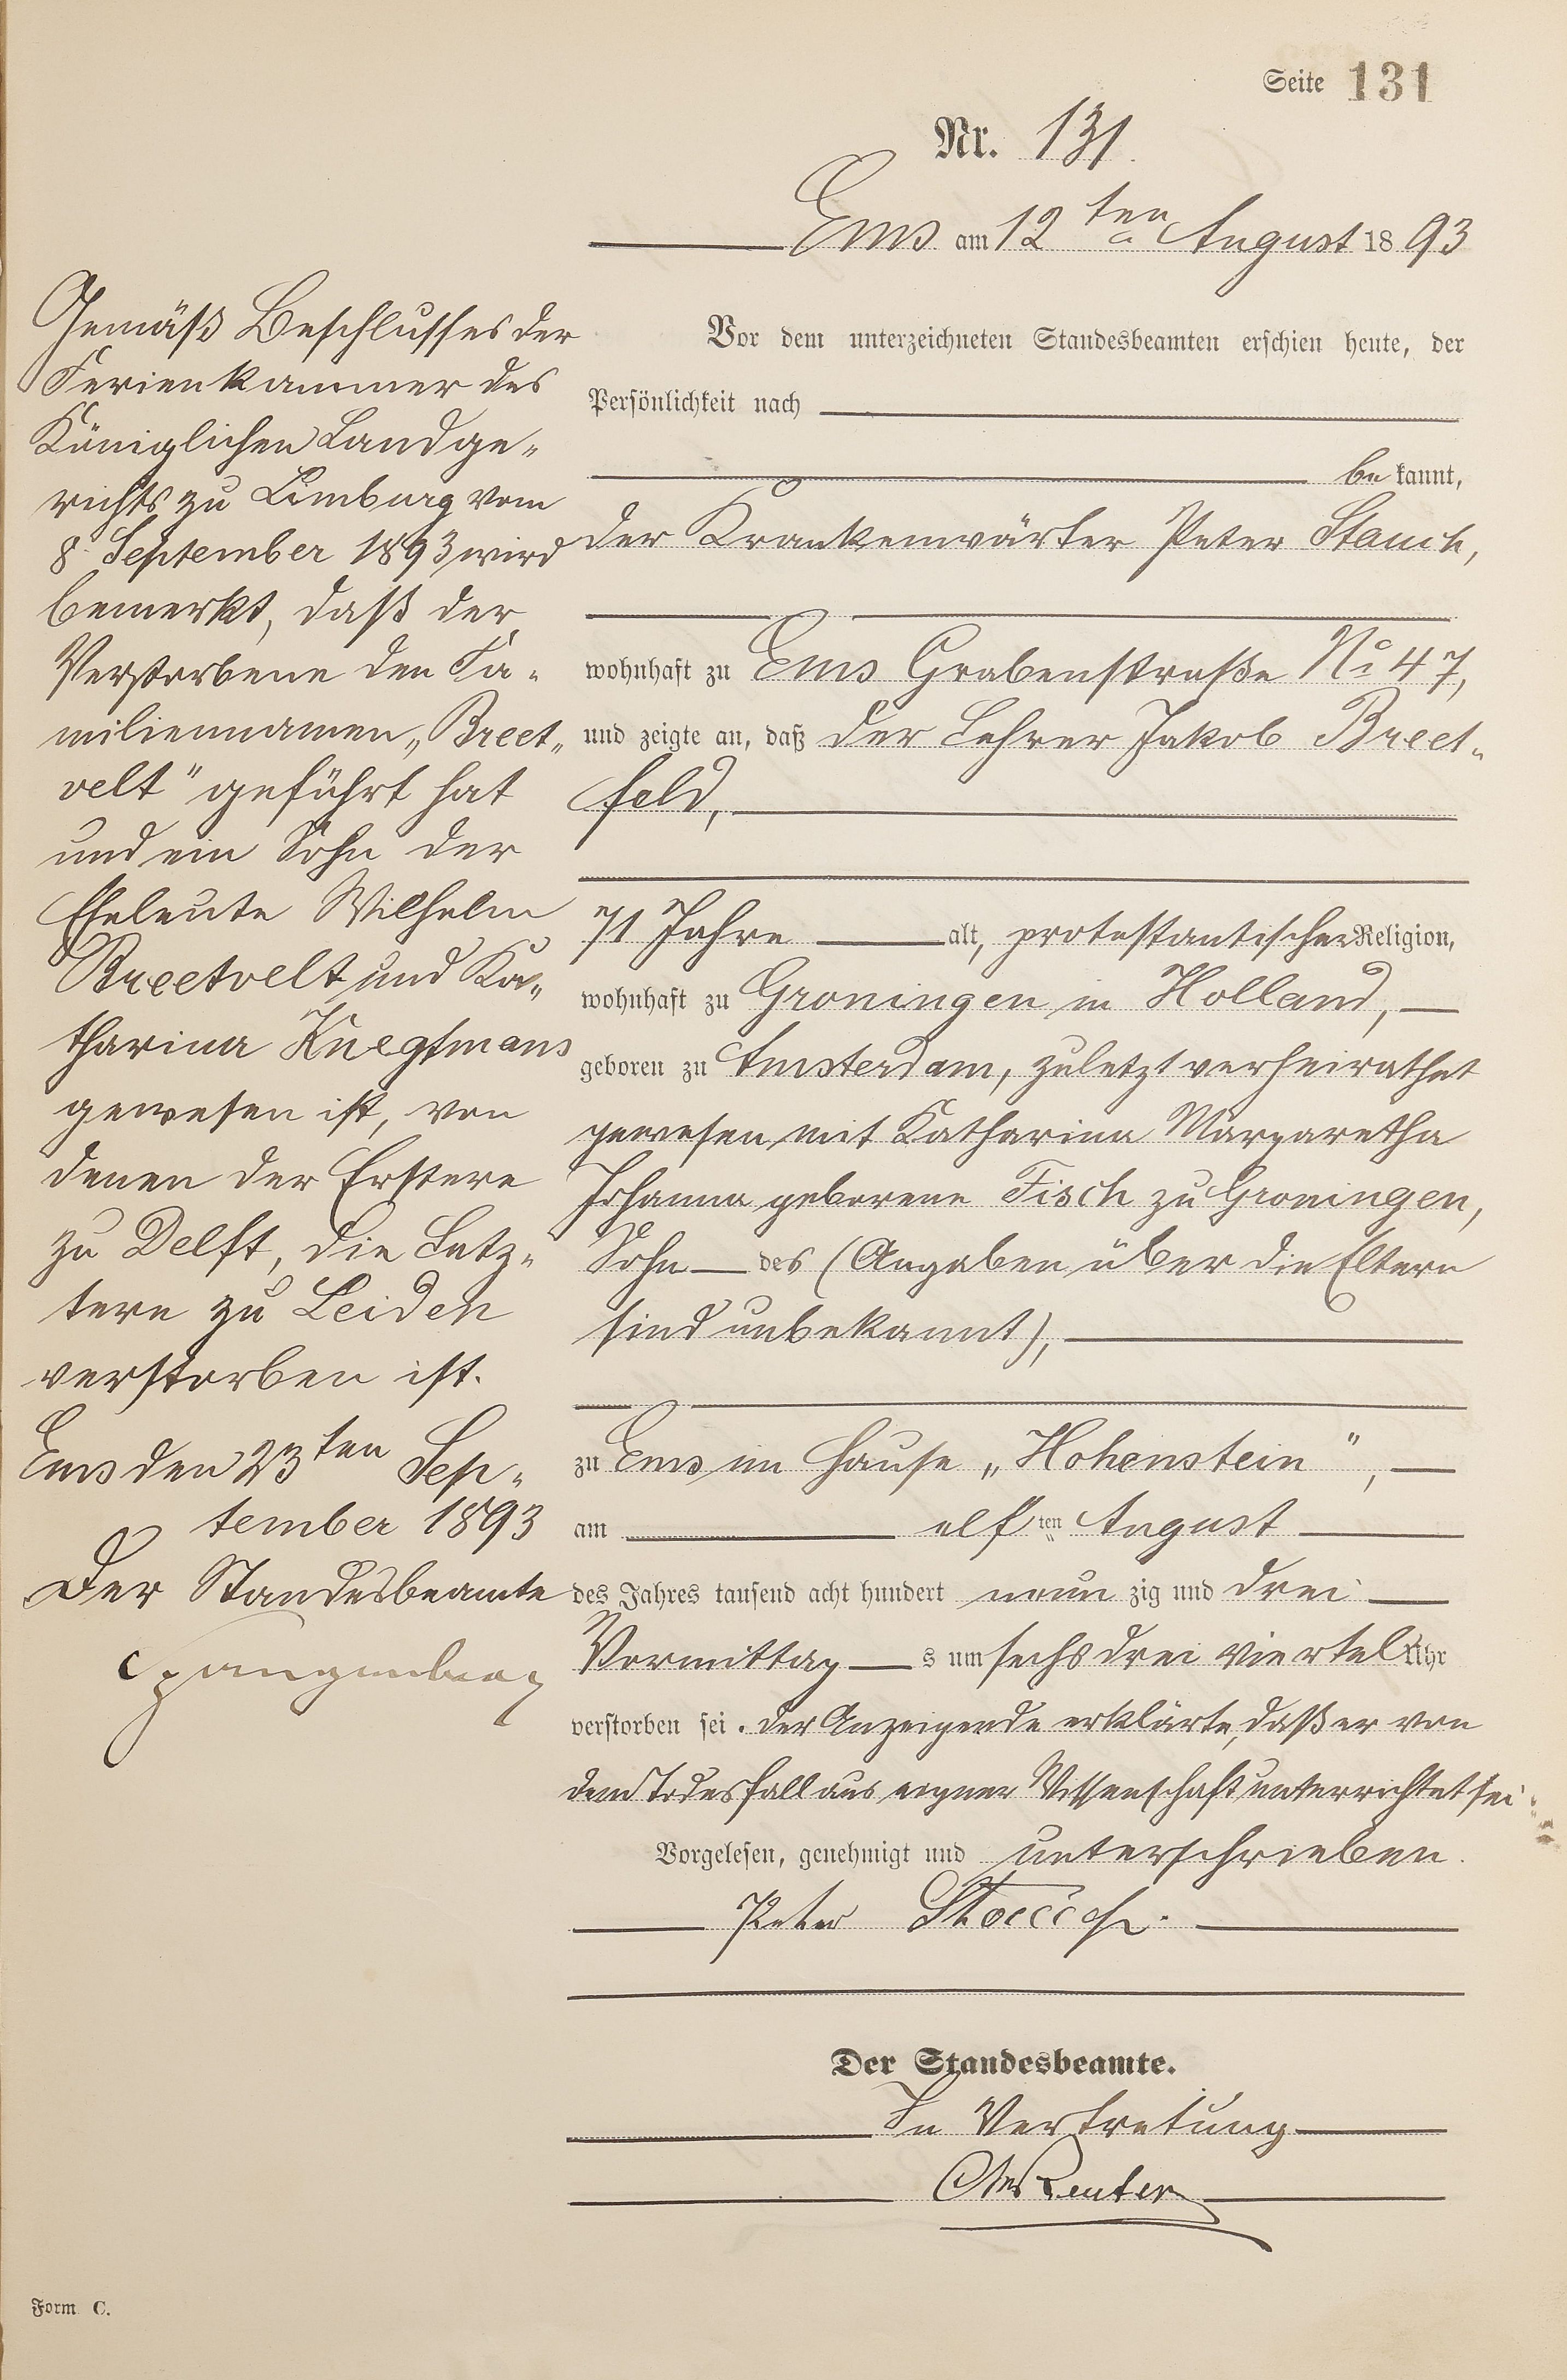 Seite 131
Nr. 131.
Ems am 12ten August 1893
Vor dem unterzeichneten Standesbeamten erschien heute, der
Persönlichkeit nach
be kannt,
der Krankenwärter Peter Stauch,
wohnhaft zu Ems Grabenstraße No 47,
und zeigte an, daß der Lehrer Jakob Breet-
feld,
71 Jahre alt, protestantischer Religion,
wohnhaft zu Groningen in Holland,
geboren zu Amsterdam, zuletzt verheirathet
gewesen mit Katharina Margaretha
Johanna geborene Fisch zu Groningen,
Sohn des (Angaben über die Eltern
sind unbekannt),
zu Ems im Hause „Hohenstein",
am elf ten August
des Jahres tausend acht hundert neun zig und drei
Vormittag s um sechs drei viertel Uhr
verstorben sei. Der Anzeigende erklärte, daß er von
dem Todesfall aus eigner Wissenschaft unterrichtet sei.
Vorgelesen, genehmigt und unterschrieben.
Peter Stauch.
Der Standesbeamte.
In Vertretung
Reuter
Gemäß Beschlusses der
Ferienkammer des
Königlichen Landge-
richts zu Limburg vom
8. September 1893 wird
bemerkt, daß der
Verstorbene den Fa-
miliennamen „Breet-
velt" geführt hat
und ein Sohn der
Eheleute Wilhelm
Breetvelt und Ka-
tharina Knegtmans
gewesen ist, von
denen der Erstere
zu Delft, die Letz-
tere zu Leiden
verstorben ist.
Ems den 23ten Sep-
tember 1893
Der Standesbeamte
Spangenberg
Form C.